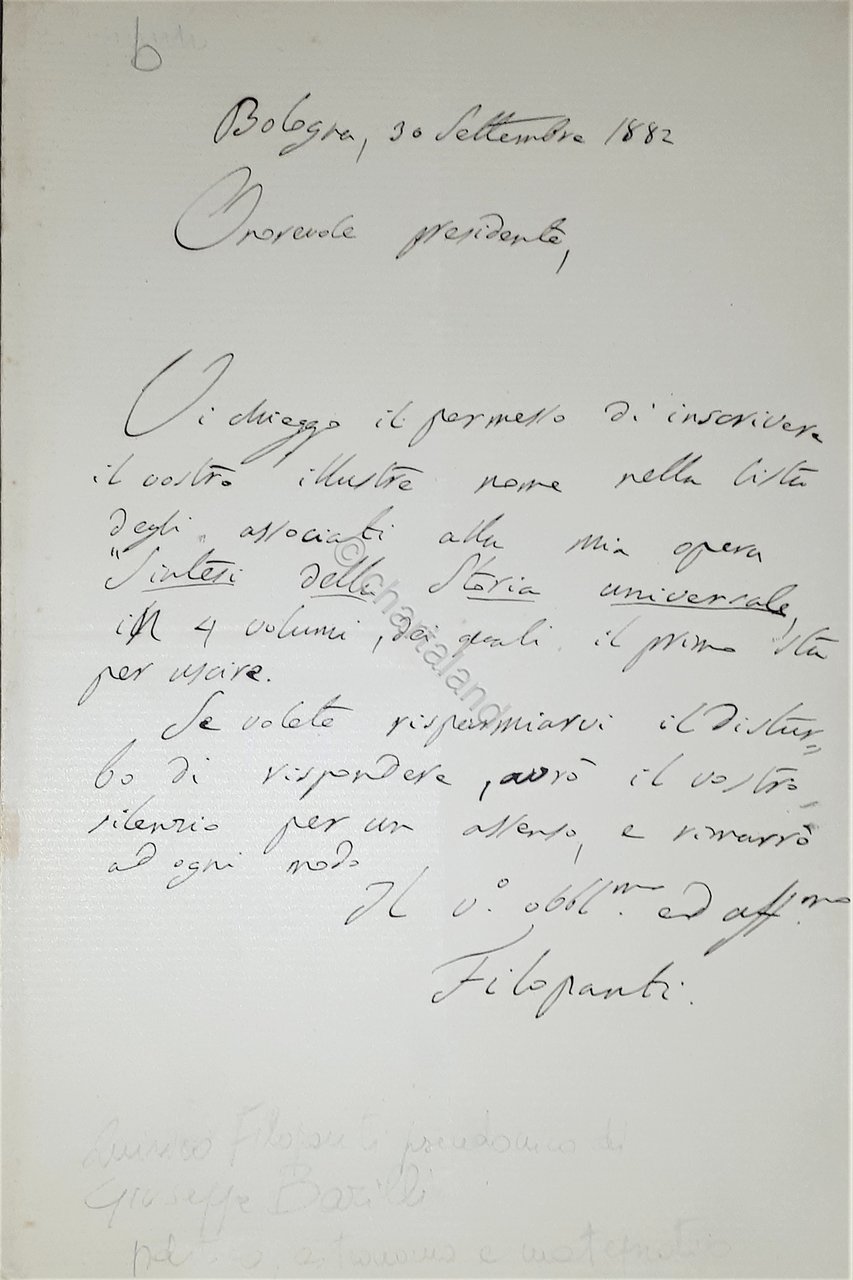 b
Bologna, 30 Settembre 1882
Onorevole presidente,
Vi chieggo il permesso di inscrivere
il vostro illustre nome nella lista
degli associati alla mia opera
"Sintesi della Storia universale,
in 4 volumi, dei quali il primo sta
per uscire.
Se volete risparmiarvi il distur=
bo di rispondere, avrò il vostro
silenzio per un assenso, e rimarrò
ad ogni modo
Il v.º obbl.mo ed aff.mo
Filopanti.
©chartaland
Filopanti pseudonimo di
Giuseppe Barilli
astronomo e matematico